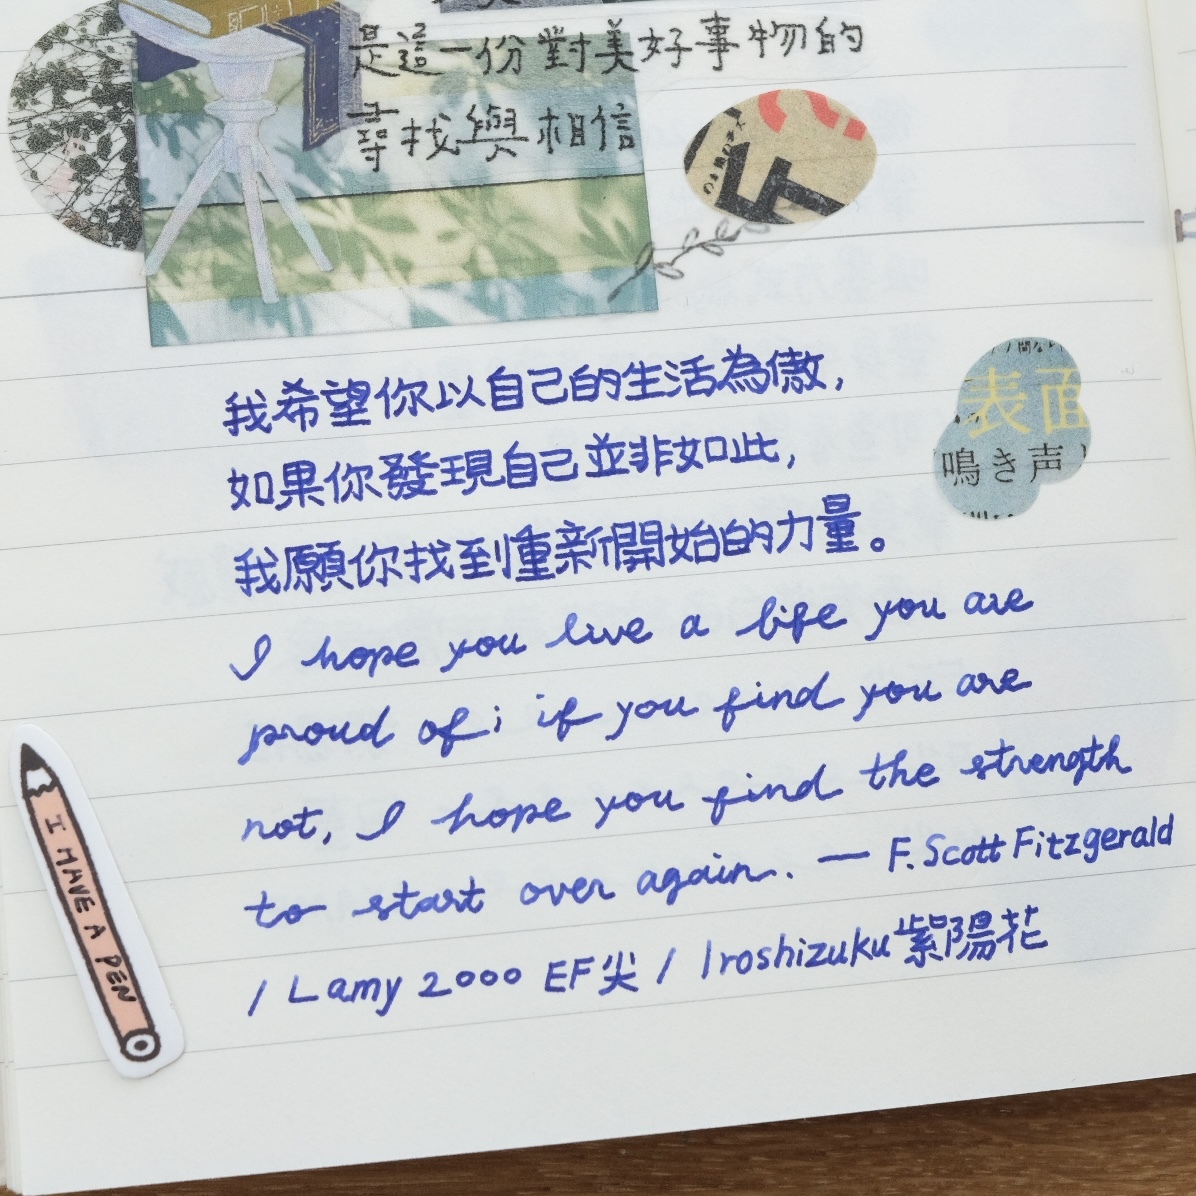 是這一份對美好事物的
尋找與相信
表面
鳴き声
我希望你以自己的生活為傲,
如果你發現自己並非如此,
我願你找到重新開始的力量。
I hope you live a life you are
proud of; if you find you are
not, I hope you find the strength
to start over again. — F. Scott Fitzgerald
/ Lamy 2000 EF尖 / Iroshizuku紫陽花
I HAVE A PEN